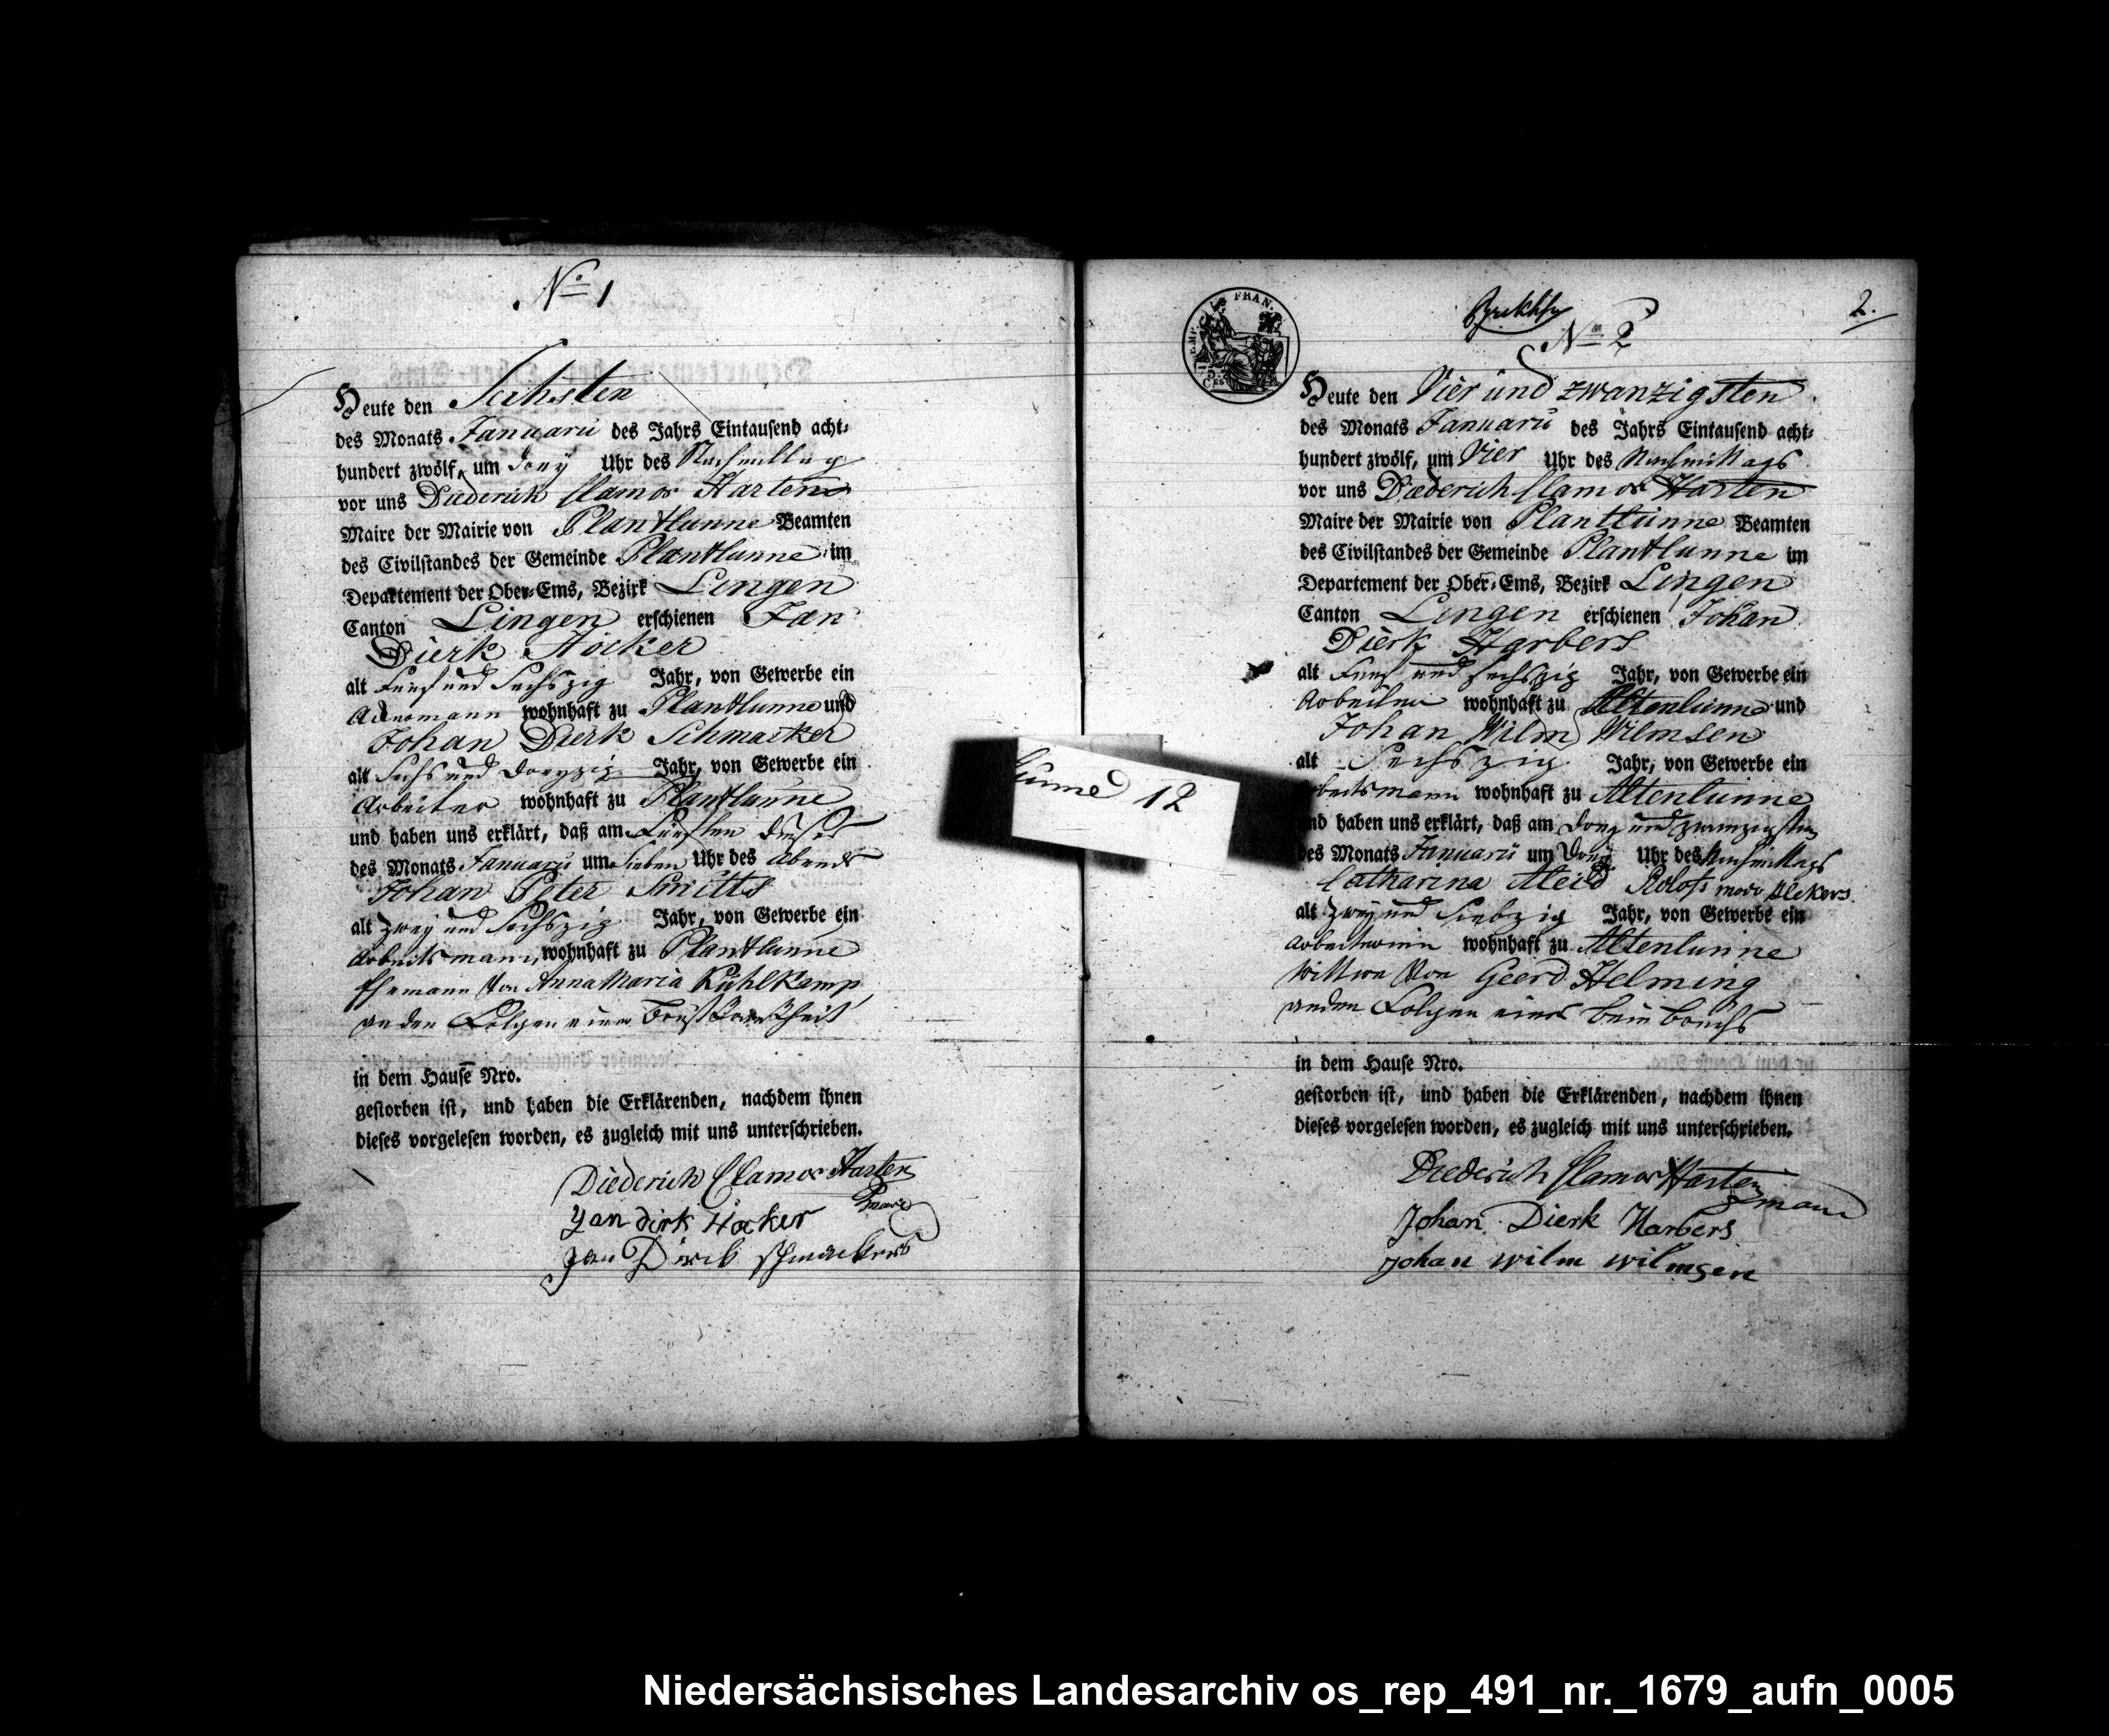 No 1
Heute den Sechsten
des Monats Januarü des Jahrs Eintausend acht-
hundert zwölf, um drey Uhr des Nachmittag
vor uns Diederich Clamor Harten
Maire der Mairie von Plantlünne Beamten
des Civilstandes der Gemeinde Plantlünne im
Departement der Ober-Ems, Bezirk Lingen
Canton Lingen erschienen Jan
Dierk Höcker
alt Fünf und Sechszig Jahr, von Gewerbe ein
Ackermann wohnhaft zu Plantlünne und
Johan Dierk Schmacker
alt Sechs und dreyzig Jahr, von Gewerbe ein
Arbeiter wohnhaft zu Plantlünne
und haben uns erklärt, daß am Fünften dieses
des Monats Januarü um Sieben Uhr des Abends
Johan Peter Smitts
alt zwey und Sechszig Jahr, von Gewerbe ein
Arbeitsmann, wohnhaft zu Plantlünne
Ehemann von Anna Maria Kühlkamp
an den Folgen einer Brust Krankheit
in dem Hause Nro.
gestorben ist, und haben die Erklärenden, nachdem ihnen
dieses vorgelesen worden, es zugleich mit uns unterschrieben.
Diederich Clamor Harten
Maire
Yan dirk Höcker
Jan Dirck Schmackers
lünne 12
EMPIRE FRAN.
2.
No 2
Heute den Vier und zwanzigsten
des Monats Januarü des Jahrs Eintausend acht-
hundert zwölf, um Vier Uhr des Nachmittags
vor uns Diederich Clamor Harten
Maire der Mairie von Plantlünne Beamten
des Civilstandes der Gemeinde Plantlünne im
Departement der Ober-Ems, Bezirk Lingen
Canton Lingen erschienen Johan
Dierk Harbers
alt Fünf und sechszig Jahr, von Gewerbe ein
Arbeiter wohnhaft zu Altenlünne und
Johan Wilm Wilmsen
alt Sechszig Jahr, von Gewerbe ein
beitsmann wohnhaft zu Altenlünne
nd haben uns erklärt, daß am drey und zwanzigsten
des Monats Januarü um Drey Uhr des Nachmittags
Catharina Aleid Rolofs modo
alt Zwey und Siebzig Jahr, von Gewerbe ein
Arbeiterinn wohnhaft zu Altenlünne
Wittwe Von Geerd Helming
an den Folgen eines Bein Bruchs
in dem Hause Nro.
gestorben ist, und haben die Erklärenden, nachdem ihnen
dieses vorgelesen worden, es zugleich mit uns unterschrieben.
Diederich Clamor Harten
Maire
Johan Dierk Harbers
Johan wilm wilmsen
Niedersächsisches Landesarchiv os_rep_491_nr._1679_aufn_0005